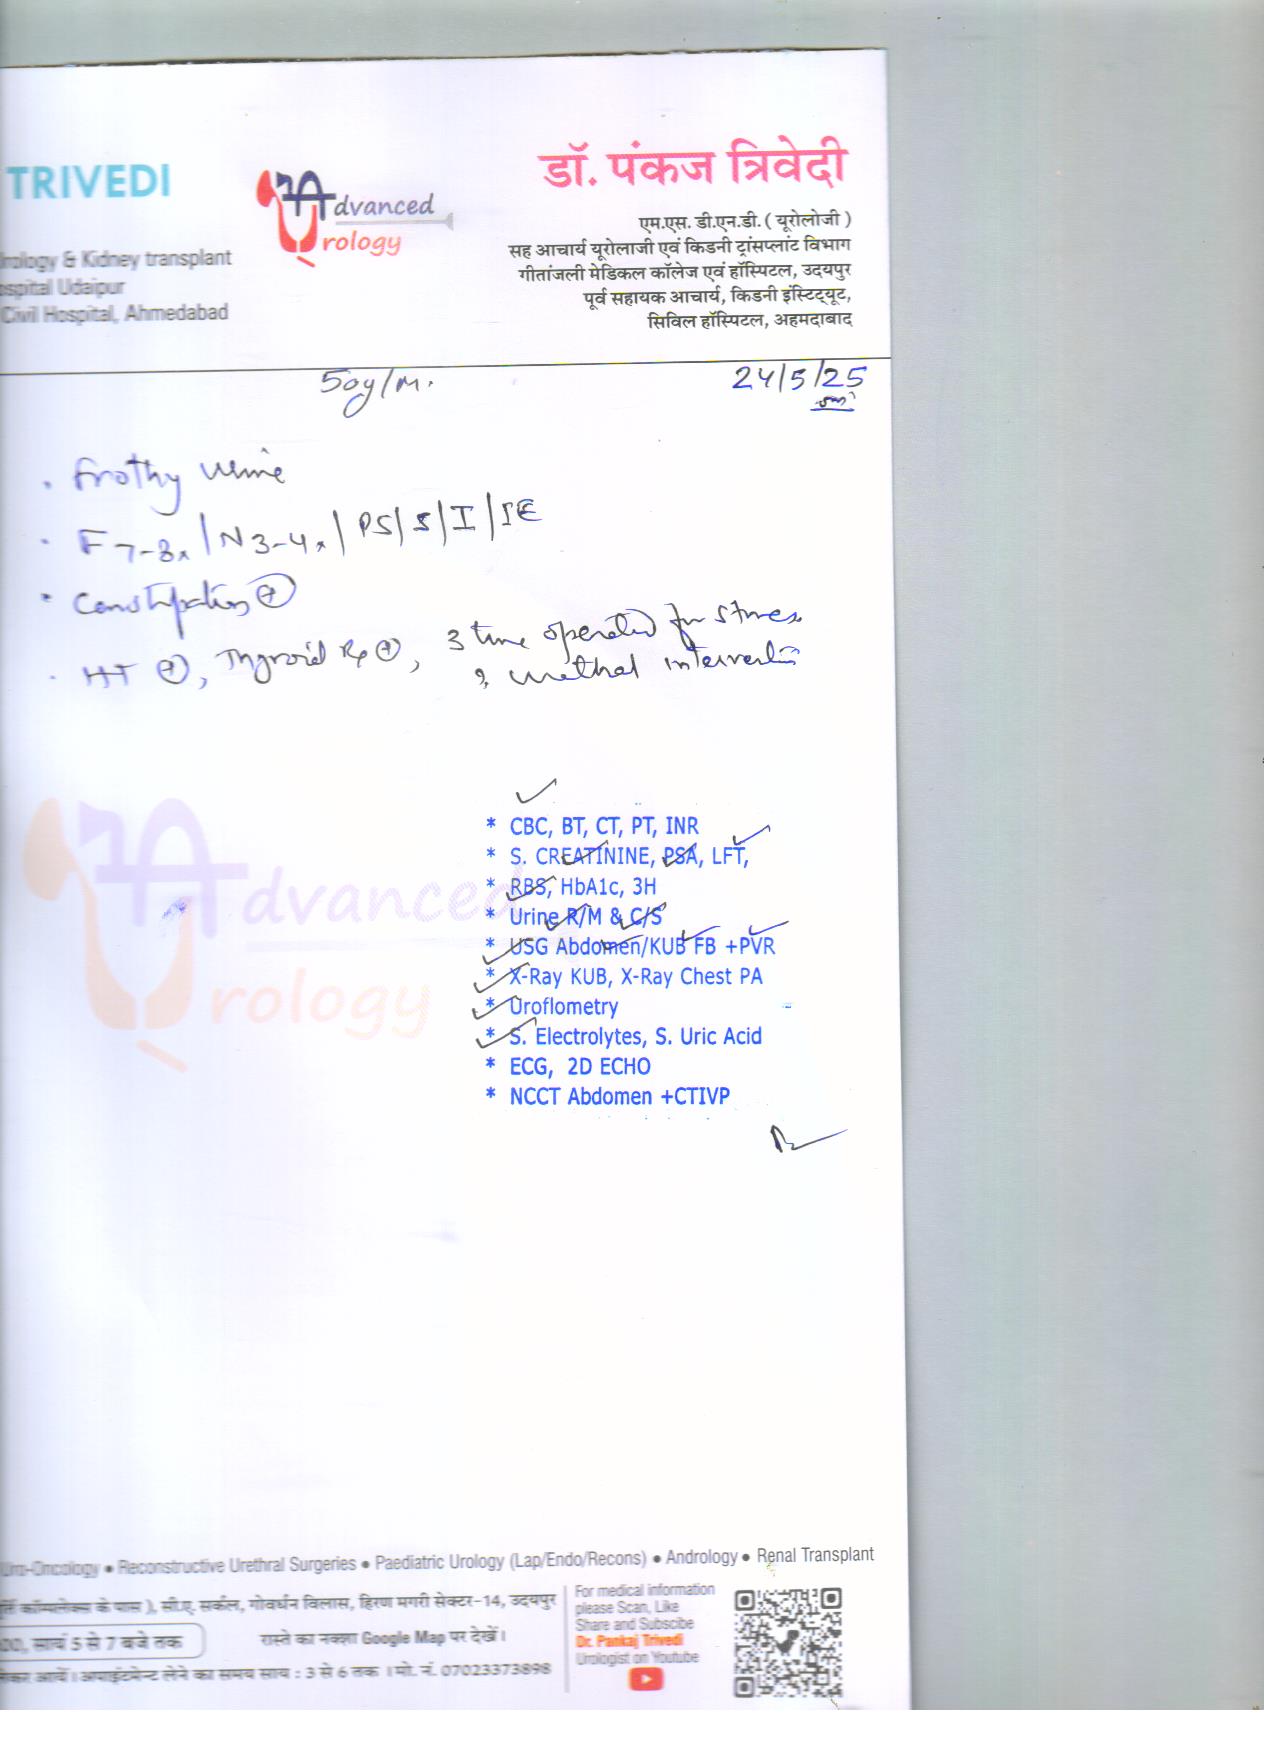 TRIVEDI
Advanced
Urology
डॉ. पंकज त्रिवेदी
एम.एस. डी.एन.डी. ( यूरोलोजी )
सह आचार्य यूरोलाजी एवं किडनी ट्रांसप्लांट विभाग
गीतांजली मेडिकल कॉलेज एवं हॉस्पिटल, उदयपुर
पूर्व सहायक आचार्य, किडनी इंस्टिट्यूट,
सिविल हॉस्पिटल, अहमदाबाद
rology & Kidney transplant
ospital Udaipur
Civil Hospital, Ahmedabad
50y/M.
24/5/25
• Frothy urine
• F 7-8x / N 3-4x / PS/S/I/IE
• Constipation ⊕
• HT ⊕, Thyroid Rx ⊕, 3 time operated for stones
& urethral intervention
* CBC, BT, CT, PT, INR
* S. CREATININE, PSA, LFT,
* RBS, HbA1c, 3H
* Urine R/M & C/S
* USG Abdomen/KUB FB +PVR
* X-Ray KUB, X-Ray Chest PA
* Uroflometry
* S. Electrolytes, S. Uric Acid
* ECG, 2D ECHO
* NCCT Abdomen +CTIVP
Advanced
Urology
Uro-Oncology • Reconstructive Urethral Surgeries • Paediatric Urology (Lap/Endo/Recons) • Andrology • Renal Transplant
कॉम्पलेक्स के पास ), सी.ए. सर्कल, गोवर्धन विलास, हिरण मगरी सेक्टर-14, उदयपुर
00), सायं 5 से 7 बजे तक
रास्ते का नक्शा Google Map पर देखें।
लेकर आवें। अपाइंटमेन्ट लेने का समय साय : 3 से 6 तक । मो. नं. 07023373898
For medical information
please Scan, Like
Share and Subscibe
Dr. Pankaj Trivedi
Urologist on Youtube